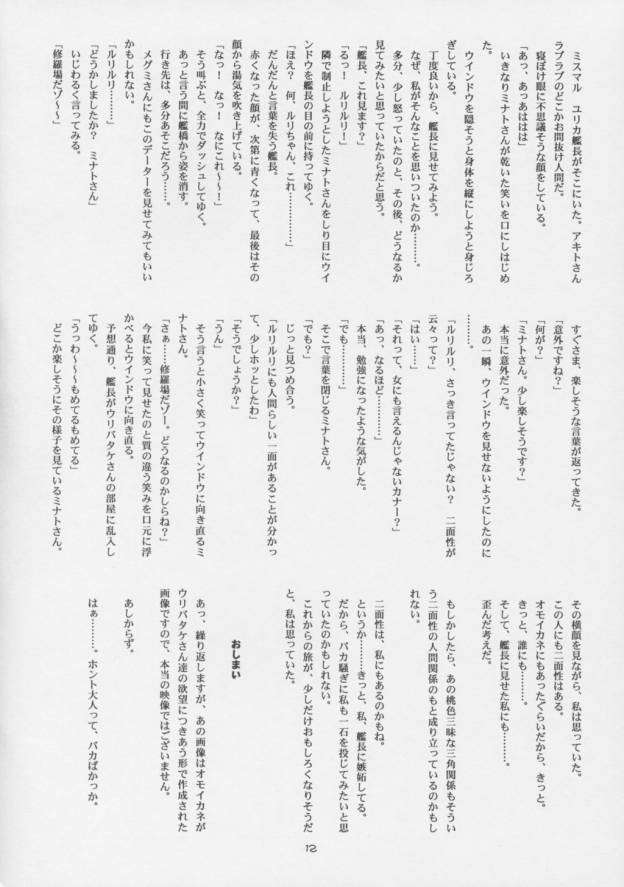 ミスマル　ユリカ艦長がそこにいた。アキトさん
ラブラブのどこかお間抜け人間だ。
寝ぼけ眼に不思議そうな顔をしている。
「あっ、あっあははは」
いきなりミナトさんが乾いた笑いを口にしはじめ
た。
ウインドウを隠そうと身体を縦にしようと身じろ
ぎしている。
丁度良いから、艦長に見せてみよう。
なぜ、私がそんなことを思いついたのか………。
多分、少し怒っていたのと、その後、どうなるか
見てみたいと思っていたからだと思う。
「艦長、これ見ます？」
「るっ！　ルリルリ！」
隣で制止しようとしたミナトさんをしり目にウイ
ンドウを艦長の目の前に持ってゆく。
「ほえ？　何、ルリちゃん、これ…………」
だんだんと言葉を失う艦長。
赤くなった顔が、次第に青くなって、最後はその
顔から湯気を吹き上げている。
「なっ！　なっ！　なにこれ～～！」
そう叫ぶと、全力でダッシュしてゆく。
あっと言う間に艦橋から姿を消す。
行き先は、多分あそこだろう……。
メグミさんにもこのデーターを見せてみてもいい
かもしれない。
「ルリルリ………」
「どうかしましたか？　ミナトさん」
いじわるく言ってみる。
「修羅場だゾ～～」
すぐさま、楽しそうな言葉が返ってきた。
「意外ですね？」
「何が？」
「ミナトさん。少し楽しそうです？」
本当に意外だった。
あの一瞬、ウインドウを見せないようにしたのに
………。
「ルリルリ、さっき言ってたじゃない？　二面性が
云々って？」
「はい……」
「それって、女にも言えるんじゃないカナー？」
「あっ、なるほど…………」
本当、勉強になったような気がした。
「でも…………」
そこで言葉を閉じるミナトさん。
「でも？」
じっと見つめ合う。
「ルリルリにも人間らしい一面があることが分かっ
て、少しホッとしたわ」
「そうでしょうか？」
「うん」
そう言うと小さく笑ってウインドウに向き直るミ
ナトさん。
「さぁ……修羅場だゾー。どうなるのかしらね？」
今私に笑って見せたのと質の違う笑みを口元に浮
かべるとウインドウに向き直る。
予想通り、艦長がウリバタケさんの部屋に乱入し
てゆく。
「うっわ～～もめてるもめてる」
どこか楽しそうにその様子を見ているミナトさん。
その横顔を見ながら、私は思っていた。
この人にも二面性はある。
オモイカネにもあったぐらいだから、きっと。
きっと、誰にも………。
そして、艦長に見せた私にも………。
歪んだ考えだ。
もしかしたら、あの桃色三昧な三角関係もそうい
う二面性の人間関係のもと成り立っているのかもし
れない。
二面性は、私にもあるのかもね。
というか………きっと、私、艦長に嫉妬してる。
だから、バカ騒ぎに私も一石を投じてみたいと思
っていたのかもしれない。
これからの旅が、少しだけおもしろくなりそうだ
と、私は思っていた。
おしまい
あっ、繰り返しますが、あの画像はオモイカネが
ウリバタケさん達の欲望につきあう形で作成された
画像ですので、本当の映像ではございません。
あしからず。
はぁ………。ホント大人って、バカばっかか。
12